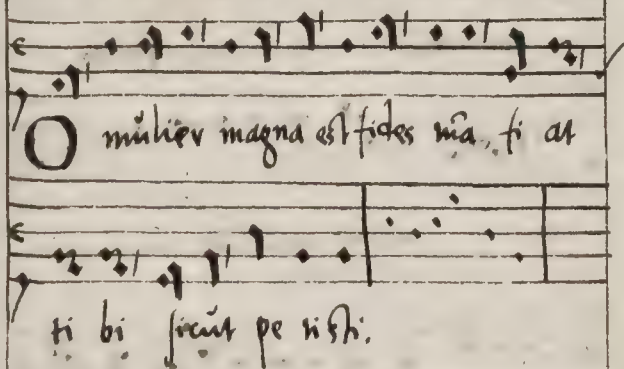 O mulier magna est fides tua, fi at
ti bi sicut pe tisti.